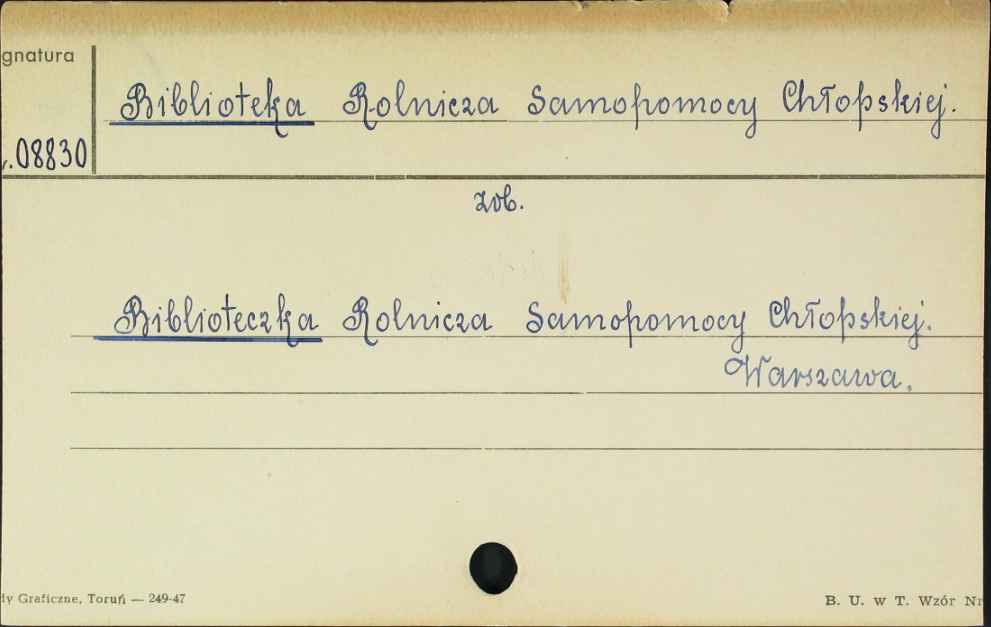 gnatura
08830
Biblioteka Rolnicza Samopomocy Chłopskiej.
zob.
Biblioteczka Rolnicza Samopomocy Chłopskiej.
Warszawa.
Graficzne, Toruń — 249-47
B. U. w T. Wzór Nr